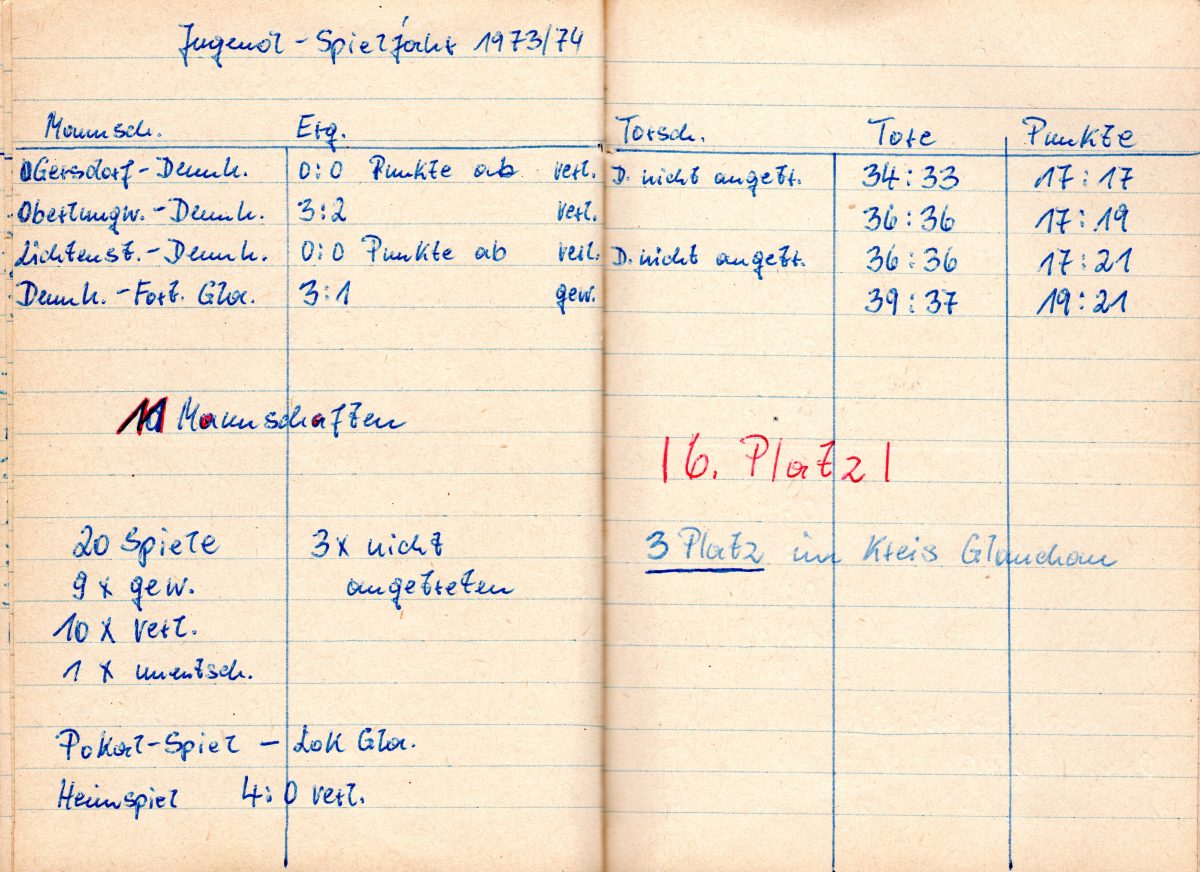 Jugend - Spieljahr 1973/74
Mannsch. Erg. Torsch. Tore Punkte
Gersdorf - Dennh. 0:0 Punkte ab verl. D. nicht angetr. 34:33 17:17
Oberlungw. - Dennh. 3:2 verl. 36:36 17:19
Lichtenst. - Dennh. 0:0 Punkte ab verl. D. nicht angetr. 36:36 17:21
Dennh. - Fort. Gla. 3:1 gew. 39:37 19:21
11 Mannschaften
16. Platz!
20 Spiele 3x nicht
9 x gew. angetreten
10 x verl.
1 x unentsch.
3 Platz im Kreis Glauchau
Pokal-Spiel - Lok Gla.
Heimspiel 4:0 verl.